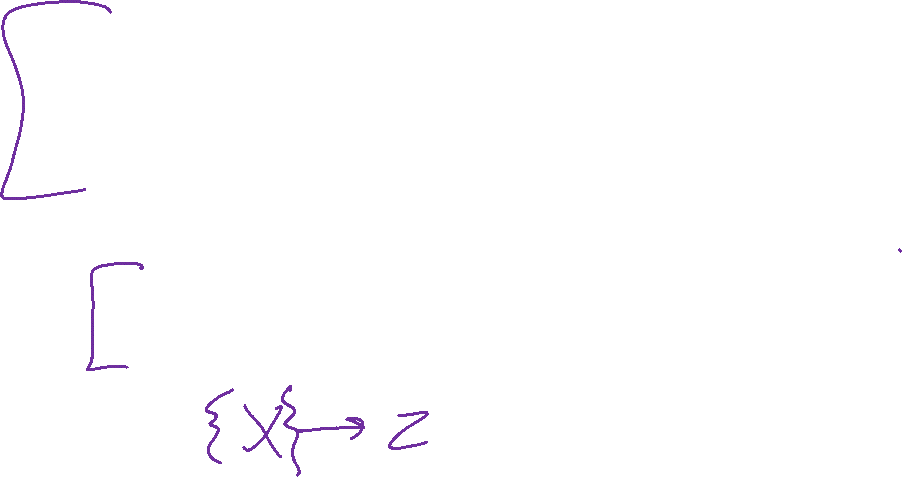 [
[
{X}→Z